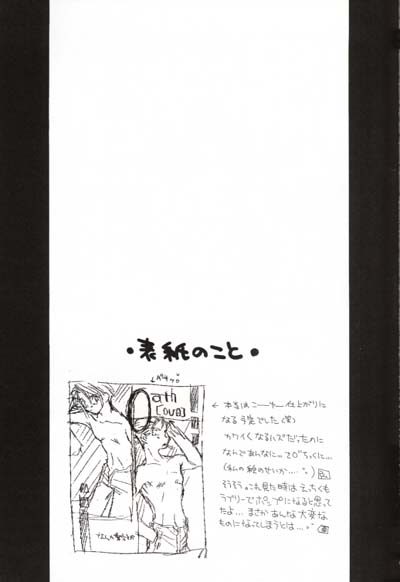 ・表紙のこと・
ath
[OVA]
← 本当は こーゆー 仕上がりに
なる予定でした(笑)
カワイくなるハズだったのに
なんであんなに
(私の絵のせいか……)
そうそう。これ見た時は えっちくも
ラブリーでポップになると思って
たよ… まさかあんな大変な
ものになってしまうとは…